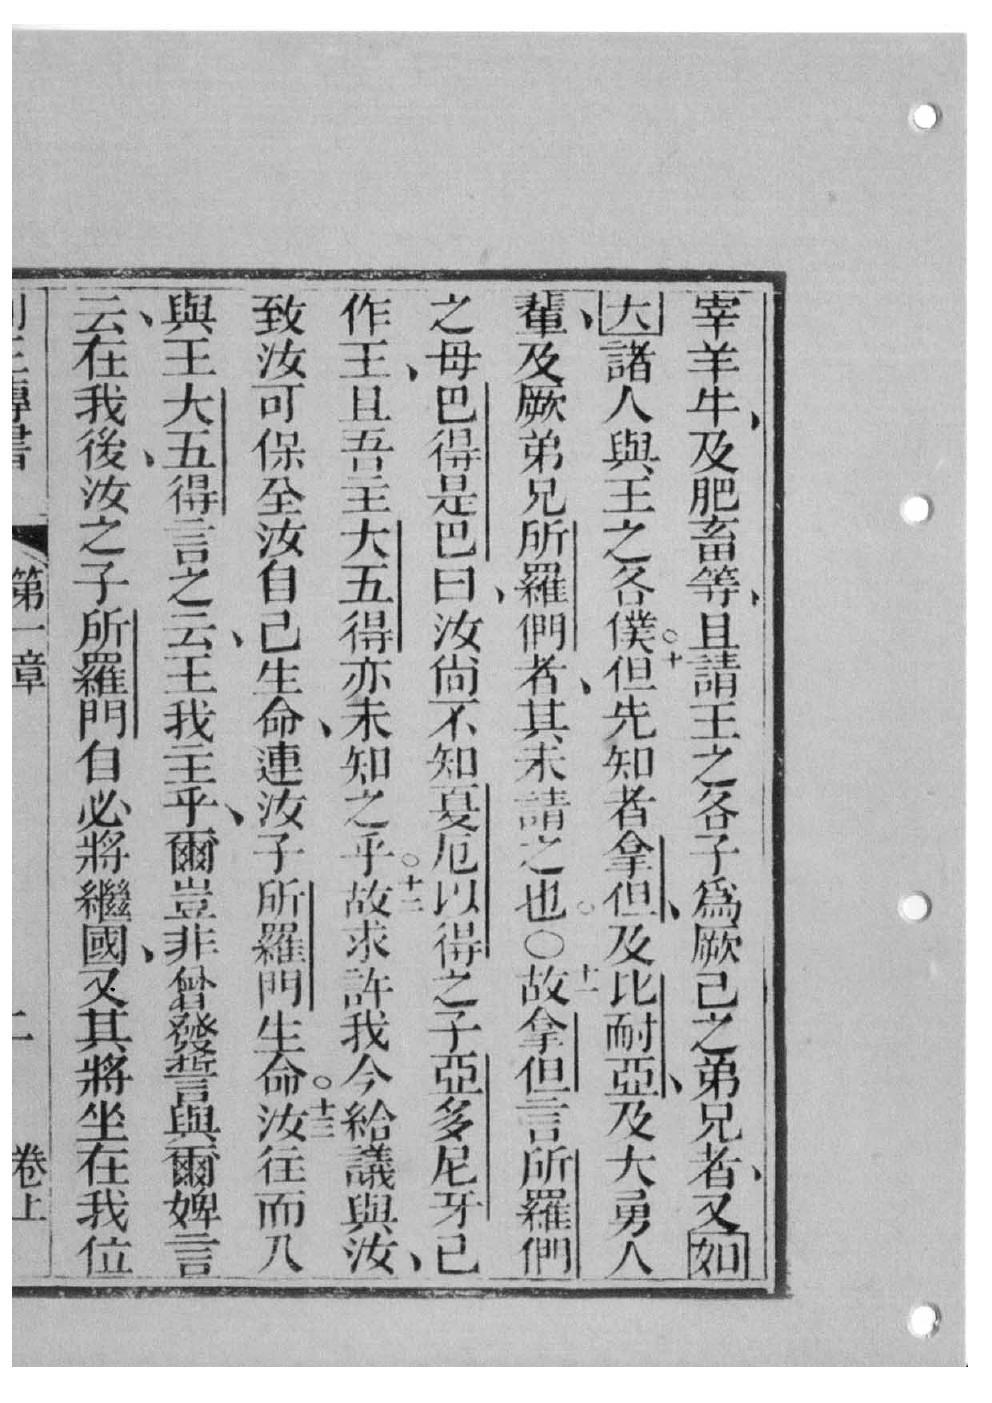 宰羊牛、及肥畜等、且請王之各子爲厥己之弟兄者、又如
大諸人與王之各僕○十但先知者拿但、及比耐亞、及大勇人
輩、及厥弟兄所羅們者、其未請之也○○十一故拿但言所羅們
之母巴得是巴曰、汝尙不知戛厄以得之子亞多尼牙已
作王、且吾主大五得亦未知之乎○十二故求許我今給議與汝、
致汝可保全汝自己生命、連汝子所羅門生命○十三汝往而入
與王大五得言之云、王我主乎、爾豈非曾發誓與爾婢言
云、在我後、汝之子所羅門自必將繼國、又其將坐在我位
列王傳書 第一章 二 卷上